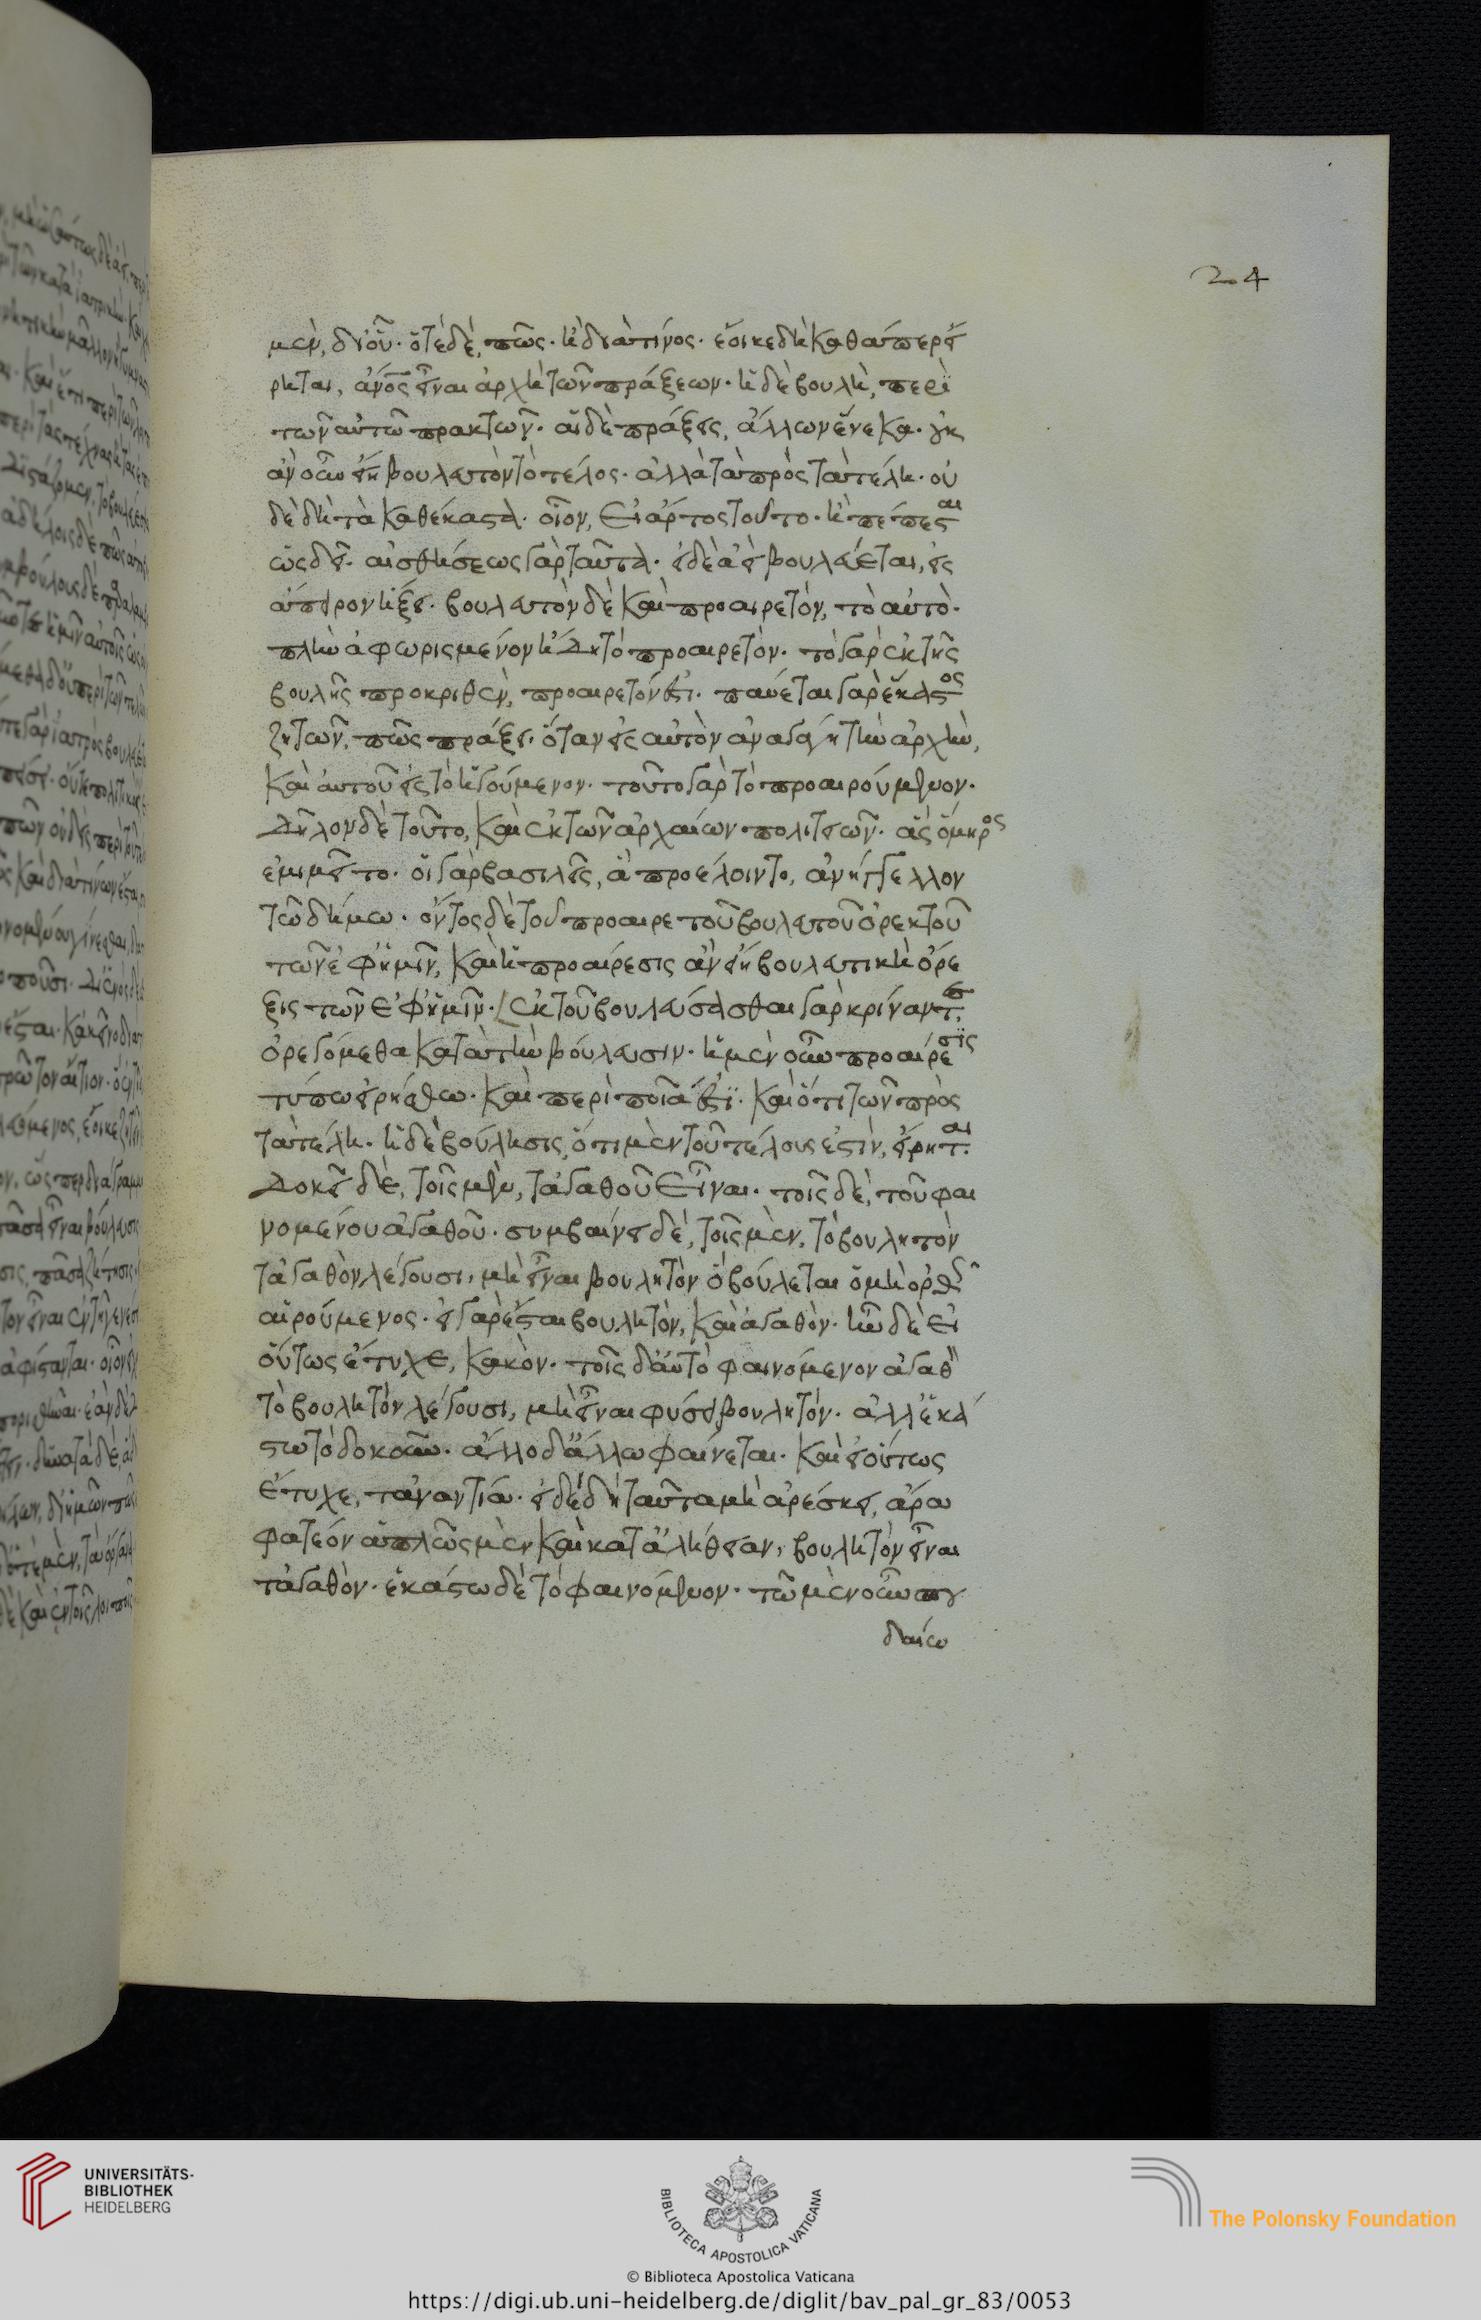 24
μὲν, δι οὗ· ὁτὲ δὲ, πῶς· ἢ διὰ τίνος· ἔοικε δὴ καθάπερ εἴ
ρηται, ἄνος εἶναι ἀρχὴ τῶν πράξεων· ἡ δὲ βουλὴ, περὶ
τῶν αὐτῶ πρακτῶν· αἱ δὲ πράξεις, ἄλλων ἕνεκα· οὐκ
ἂν οὖν εἴη βουλευτὸν τὸ τέλος· ἀλλὰ τὰ πρὸς τὰ τέλη· οὐ
δὲ δὴ τὰ καθέκαστα· οἷον, εἰ ἄρτος τοῦτο· ἢ πέπεπται
ὡς δεῖ· αἰσθήσεως γὰρ ταῦτα· εἰ δὲ ἀεὶ βουλεύεται, εἰς
ἄπειρον ἥξει· βουλευτὸν δὲ καὶ προαιρετόν, τὸ αὐτὸ·
πλὴν ἀφωρισμένον ἤδη τὸ προαιρετόν· τὸ γὰρ ἐκ τῆς
βουλῆς προκριθὲν, προαιρετόν ἐστι· παύεται γὰρ ἕκαστος
ζητῶν, πῶς πράξει· ὅταν εἰς αὐτὸν ἀναγάγη τὴν ἀρχὴν,
καὶ αὐτοῦ εἰς τὸ ἡγούμενον· τοῦτο γὰρ τὸ προαιρούμενον·
δῆλον δὲ τοῦτο, καὶ ἐκ τῶν ἀρχαίων πολιτειῶν· ἃς ὅμηρος
ἐμιμεῖτο· οἱ γὰρ βασιλεῖς, ἃ προέλοιντο, ἀνήγγελλον
τῶ δήμω· ὄντος δὲ τοῦ προαιρε τοῦ βουλευτοῦ ὀρεκτοῦ
τῶν ἐφ ἡμῖν, καὶ ἡ προαίρεσις ἂν εἴη βουλευτικὴ ὄρε
ξις τῶν ἐφ ἡμῖν· ἐκ τοῦ βουλεύσασθαι γὰρ κρίναντες
ὀρεγόμεθα κατὰ τὴν βούλευσιν· ἡ μὲν οὖν προαίρεσις
τύπω εἰρήσθω· καὶ περὶ ποῖά ἐστι· καὶ ὅτι τῶν πρὸς
τὰ τέλη· ἡ δὲ βούλησις, ὅτι μὲν τοῦ τέλους ἐστὶν, εἴρηται·
δοκεῖ δὲ, τοῖς μὲν, τἀγαθοῦ εἶναι· τοῖς δὲ, τοῦ φαι
νομένου ἀγαθοῦ· συμβαίνει δὲ, τοῖς μὲν, τὸ βουλητὸν
τἀγαθὸν λέγουσι, μὴ εἶναι βουλητὸν ὃ βούλεται ὁ μὴ ὀρθῶς
αἱρούμενος· εἰ γὰρ ἔσται βουλητόν, καὶ ἀγαθὸν· ἦν δὲ εἰ
οὕτως ἔτυχε, κακὸν· τοῖς δ αὖ τὸ φαινόμενον ἀγαθὸν
τὸ βουλητὸν λέγουσι, μὴ εἶναι φύσει βουλητόν· ἀλλ ἑκά
στω τὸ δοκοῦν· ἄλλο δ ἄλλω φαίνεται· καὶ εἰ οὕτως
ἔτυχε, τἀναντία· εἰ δὲ δὴ ταῦτα μὴ ἀρέσκει, ἆρα
φατέον ἁπλῶς μὲν καὶ κατ ἀλήθειαν, βουλητὸν εἶναι
τἀγαθὸν· ἑκάστω δὲ τὸ φαινόμενον· τῶ μὲν οὖν σπου
δαίω
UNIVERSITÄTS-
BIBLIOTHEK
HEIDELBERG
BIBLIOTECA APOSTOLICA VATICANA
The Polonsky Foundation
© Biblioteca Apostolica Vaticana
https://digi.ub.uni-heidelberg.de/diglit/bav_pal_gr_83/0053